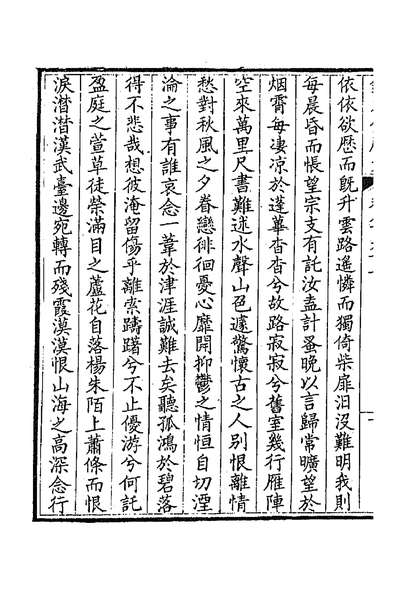 依依欲歷而既升雲路遙憐而獨倚柴扉汨沒難明我則
每晨昏而悵望宗支有託汝盍計蚤晚以言歸常曠望於
烟霄每凄凉於蓬蓽杳杳兮故路寂寂兮舊室幾行雁陣
空來萬里尺書難述水聲山色遽驚懷古之人别恨離情
愁對秋風之夕眷戀徘徊憂心靡開抑鬱之情恒自切湮
淪之事有誰哀念一葦於津涯誠難去矣聽孤鴻於碧落
得不悲哉想彼淹留傷乎離索躊躇兮不止優游兮何託
盈庭之萱草徒榮滿目之蘆花自落楊朱陌上蕭條而恨
淚潸潸漢武臺邊宛轉而殘霞漠漠恨山海之高深念行